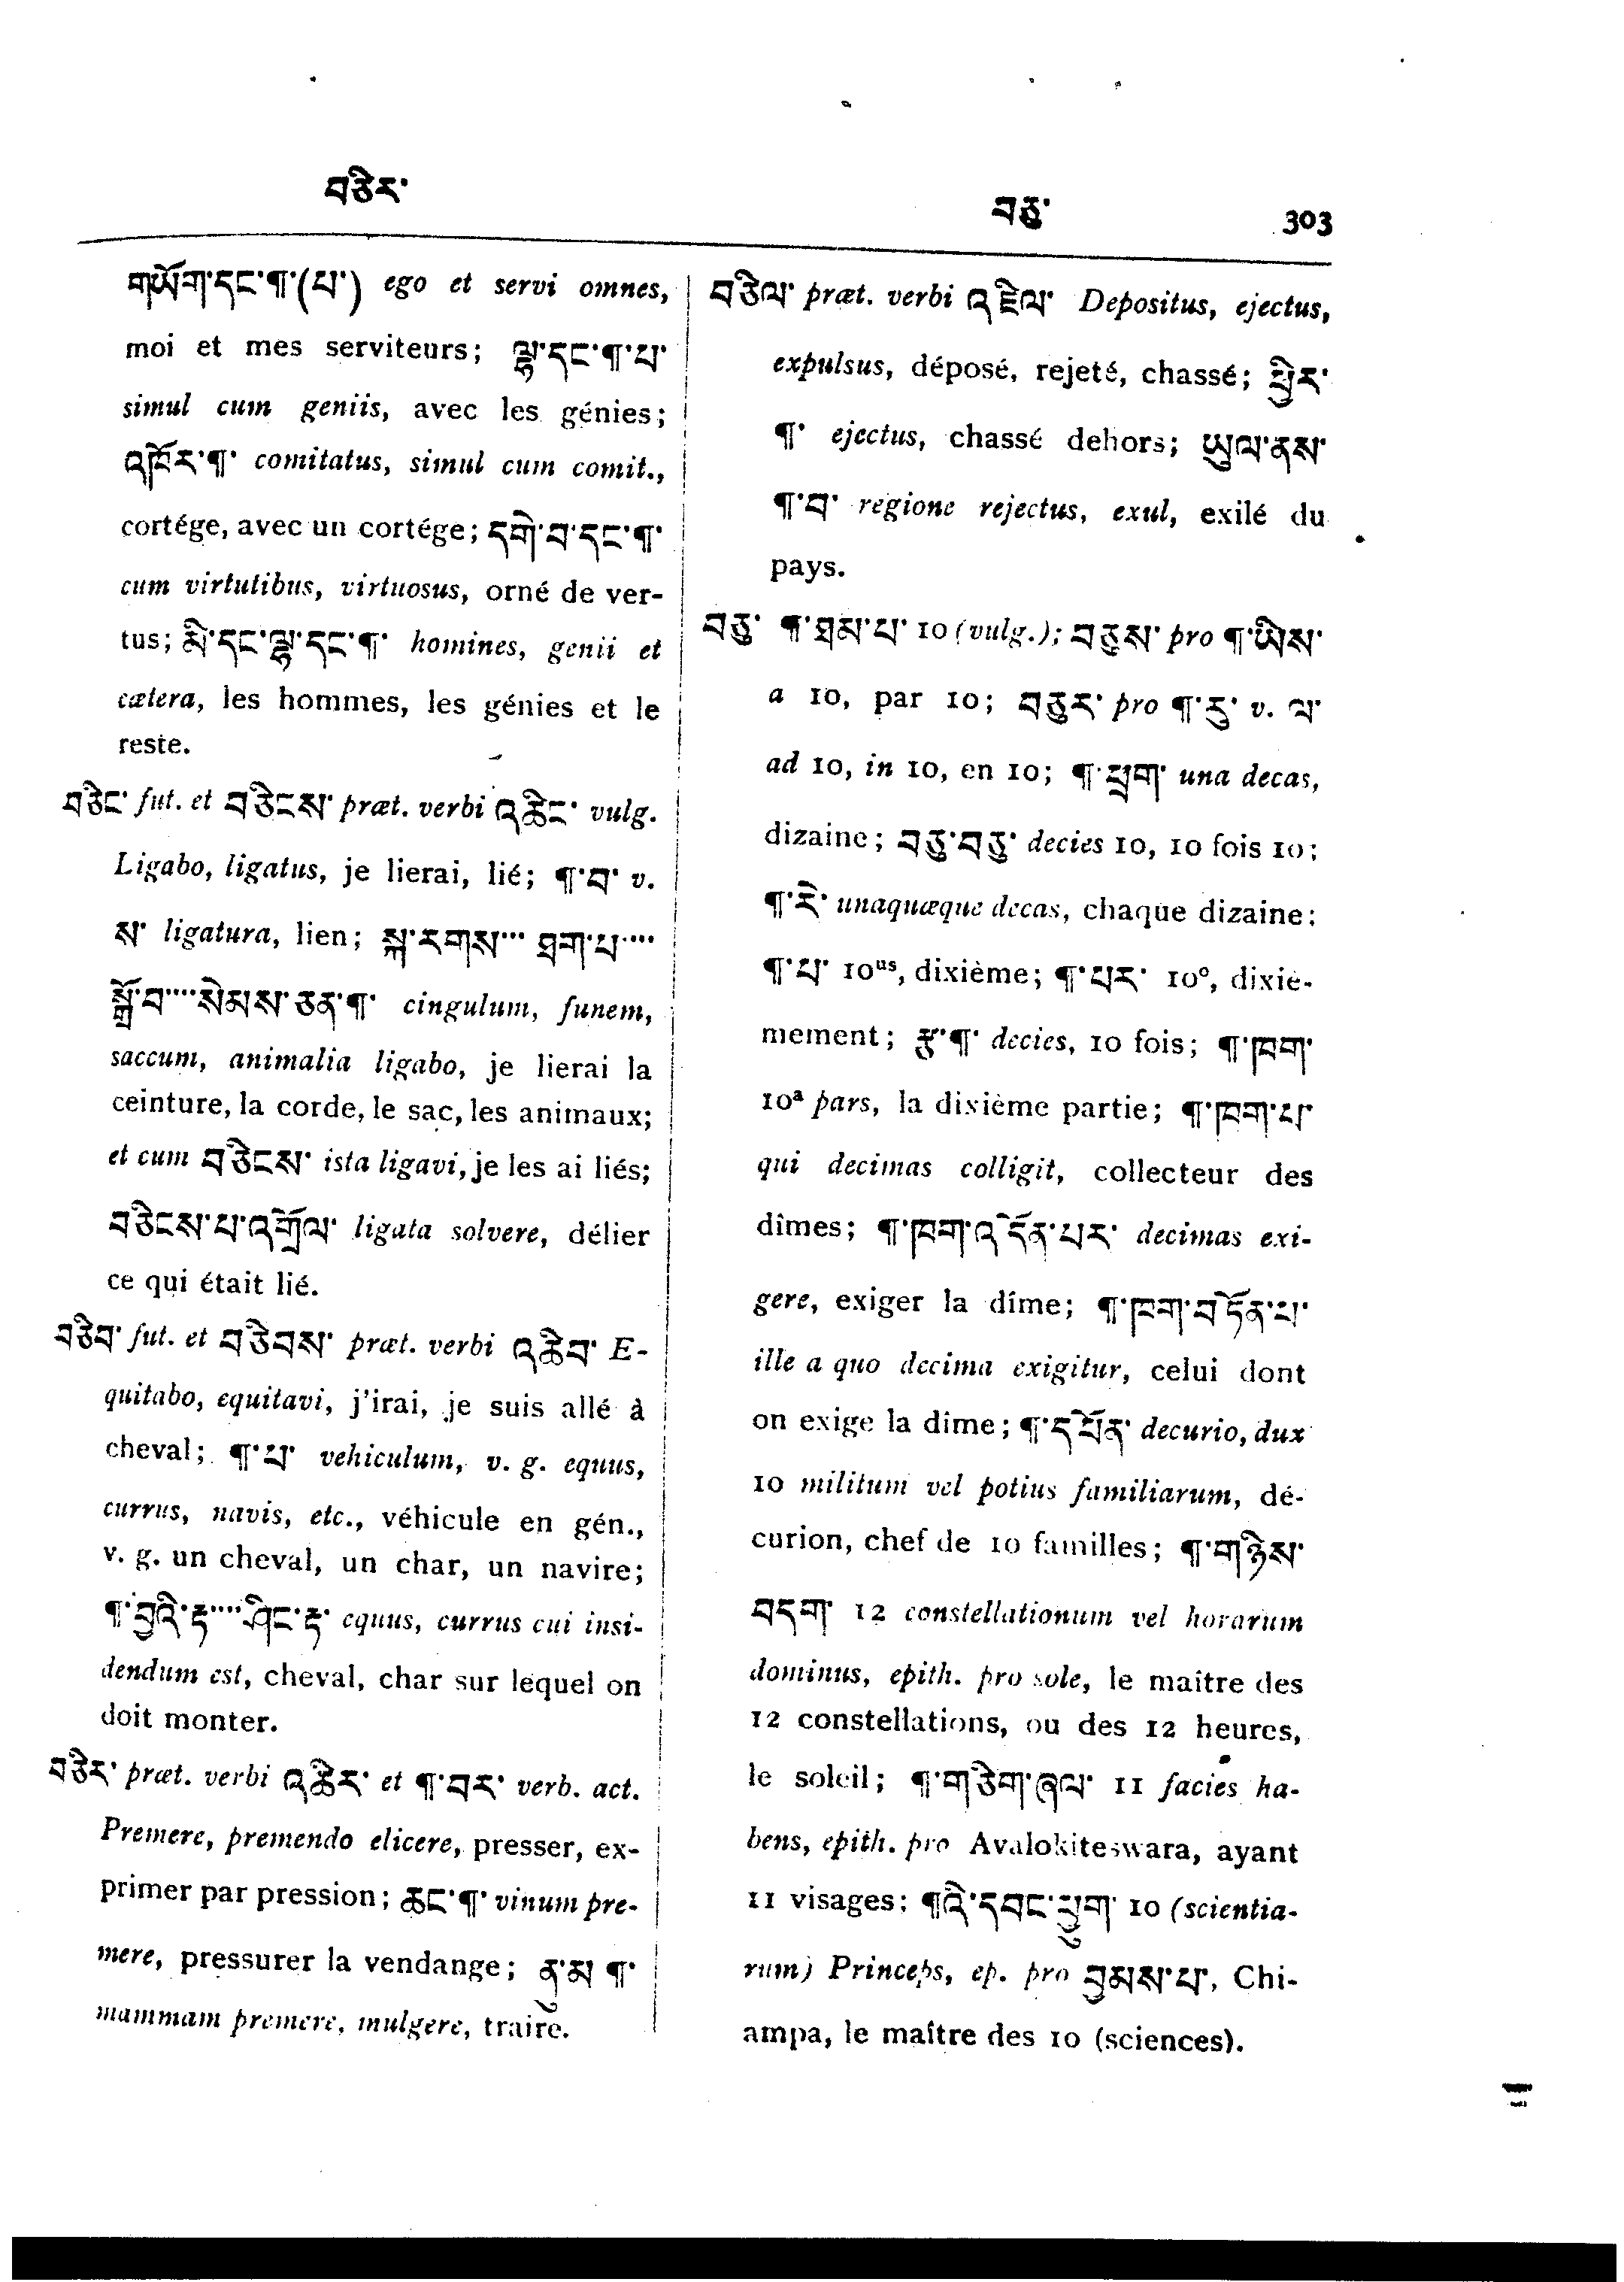 བཅིར་
བཅུ་ 303
གཡོག་དང་¶་(པ་) ego et servi omnes,
moi et mes serviteurs; ལྷ་དང་¶་པ་
simul cum geniis, avec les génies;
འཁོར་¶་ comitatus, simul cum comit.,
cortége, avec un cortége; དགེ་བ་དང་¶་
cum virtutibus, virtuosus, orné de ver-
tus; མི་དང་ལྷ་དང་¶་ homines, genii et
cætera, les hommes, les génies et le
reste.
བཅིང་ fut. et བཅིངས་ præt. verbi འཆིང་ vulg.
Ligabo, ligatus, je lierai, lié; ¶་བ་ v.
ས་ ligatura, lien; སྐ་རགས་... ཐག་པ་....
སྒྲོ་བ་....སེམས་ཅན་¶་ cingulum, funem,
saccum, animalia ligabo, je lierai la
ceinture, la corde, le sac, les animaux;
et cum བཅིངས་ ista ligavi, je les ai liés;
བཅིངས་པ་འགྲོལ་ ligata solvere, délier
ce qui était lié.
བཅིབ་ fut. et བཅིབས་ præt. verbi འཆིབ་ E-
quitabo, equitavi, j'irai, je suis allé à
cheval; ¶་པ་ vehiculum, v. g. equus,
currus, navis, etc., véhicule en gén.,
v. g. un cheval, un char, un navire;
¶་བྱའི་རྟ་....ཤིང་རྟ་ equus, currus cui insi-
dendum est, cheval, char sur lequel on
doit monter.
བཅིར་ præt. verbi འཆིར་ et ¶་བར་ verb. act.
Premere, premendo elicere, presser, ex-
primer par pression; ཆང་¶་ vinum pre-
mere, pressurer la vendange; ནུ་མ་¶་
mammam premere, mulgere, traire.
བཅིལ་ præt. verbi འཇིལ་ Depositus, ejectus,
expulsus, déposé, rejeté, chassé; ཕྱིར་
¶་ ejectus, chassé dehors; ཡུལ་ནས་
¶་བ་ regione rejectus, exul, exilé du
pays.
བཅུ་ ¶་ཐམ་པ་ 10 (vulg.); བཅུས་ pro ¶་ཡིས་
a 10, par 10; བཅུར་ pro ¶་རུ་ v. ལ་
ad 10, in 10, en 10; ¶་ཕྲག་ una decas,
dizaine; བཅུ་བཅུ་ decies 10, 10 fois 10;
¶་རེ་ unaquæque decas, chaque dizaine;
¶་པ་ 10us, dixième; ¶་པར་ 10o, dixiè-
mement; རྩ་¶་ decies, 10 fois; ¶་ཁག་
10a pars, la dixième partie; ¶་ཁག་པ་
qui decimas colligit, collecteur des
dîmes; ¶་ཁག་འདོན་པར་ decimas exi-
gere, exiger la dîme; ¶་ཁག་བཏོན་པ་
ille a quo decima exigitur, celui dont
on exige la dîme; ¶་དཔོན་ decurio, dux
10 militum vel potius familiarum, dé-
curion, chef de 10 familles; ¶་གཉིས་
བདག་ 12 constellationum vel horarum
dominus, epith. pro sole, le maître des
12 constellations, ou des 12 heures,
le soleil; ¶་གཅིག་ཞལ་ 11 facies ha-
bens, epith. pro Avalokiteswara, ayant
11 visages; ¶འི་དབང་ཕྱུག་ 10 (scientia-
rum) Princeps, ep. pro བྱམས་པ་, Chi-
ampa, le maître des 10 (sciences).